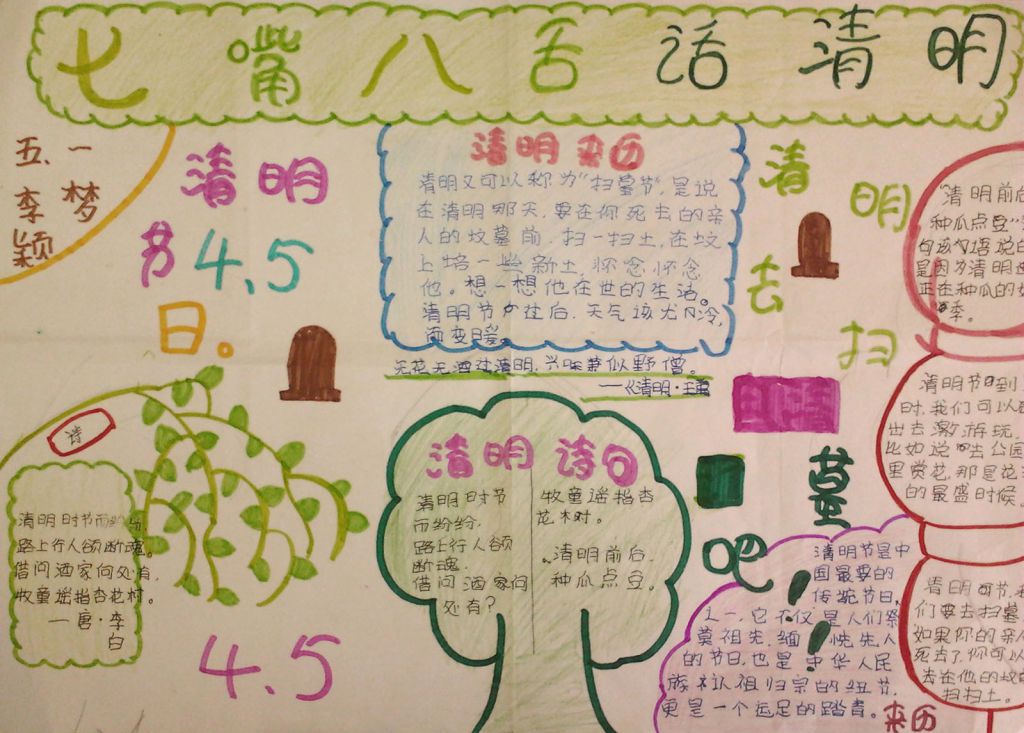 七嘴八舌话清明
五、一
李梦颖
清明
节 4.5
日。
清明来历
清明又可以称为“扫墓节”,是说
在清明那天,要在你死去的亲
人的坟墓前,扫一扫土,在坟
上培一些新土,怀念怀念
他。想一想他在世的生活。
清明节
后,天气
冷,
而变暖。
无花无酒过清明,兴味萧似野僧。
——《清明·王禹
清明去扫
墓
吧!
诗
清明时节雨纷纷
路上行人欲断魂。
借问酒家何处有,
牧童遥指杏花村。
——唐·李
白
4.5
清明诗句
清明时节
雨纷纷,
路上行人欲
断魂。
借问酒家何
处有?
牧童遥指杏
花村。
清明前后,
种瓜点豆。
“清明前后
种瓜点豆”
句话说
是因为清明
正在种瓜的
季。
清明节到
时,我们可以
出去游玩,
比如说
公园
里赏花,那是花
的最盛时候
清明时节,我
们要去扫墓
如果你的亲人
死去了,你可以
去在他的坟
扫扫土。
清明节是中
国最要的
传统节日,
上一,它不仅是人们祭
奠祖先,缅
先人
的节日,也是中华人民
族认祖归宗的纽节,
更是一个远足的踏青。
来历